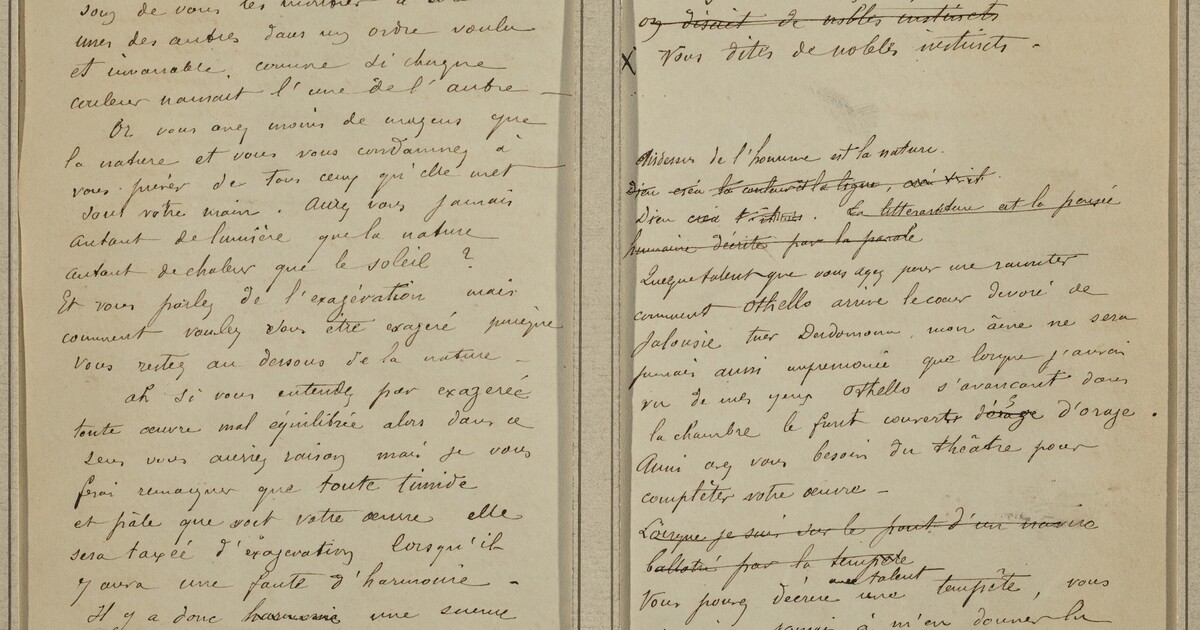 soin de vous les montrer à
unes des autres dans un ordre voulu
et invariable, comme si chaque
couleur naissait l'une de l'autre —
Or vous avez moins de moyens que
la nature et vous vous condamnez à
vous priver de tous ceux qu'elle met
sous votre main. Aurez vous jamais
autant de lumière que la nature
autant de chaleur que le soleil ?
Et vous parlez de l'exagération mais
comment voulez vous être exagéré puisque
vous restez au dessous de la nature —
ah si vous entendez par exagerée
toute œuvre mal équilibrée alors dans ce
sens vous auriez raison mais je vous
ferai remarquer que toute timide
et pâle que soit votre œuvre elle
sera taxée d'exagération lorsqu'il
y aura une faute d'harmonie —
Il y a donc harmonie une science
on disait de nobles instincts
X Vous dites de nobles instincts —
Audessus de l'homme est la nature.
Dieu créa la couleur et la ligne, créa
Dieu créa. La litterature est la pensée
humaine décrite par la parole
Quelque talent que vous ayez pour me raconter
comment Othello arrive le cœur devoré de
Jalousie tuer Desdemona mon âme ne sera
jamais aussi impressionée que lorsque j'aurai
vu de mes yeux Othello s'avancant dans
la chambre le front couvert d'orage d'orage.
Aussi avez vous besoin du théâtre pour
complêter votre œuvre —
Lorsque je suis sur le pont d'un navire
ballotté par la tempête
avec talent
Vous pouvez décrire une tempête, vous
jamais à m'en donner la